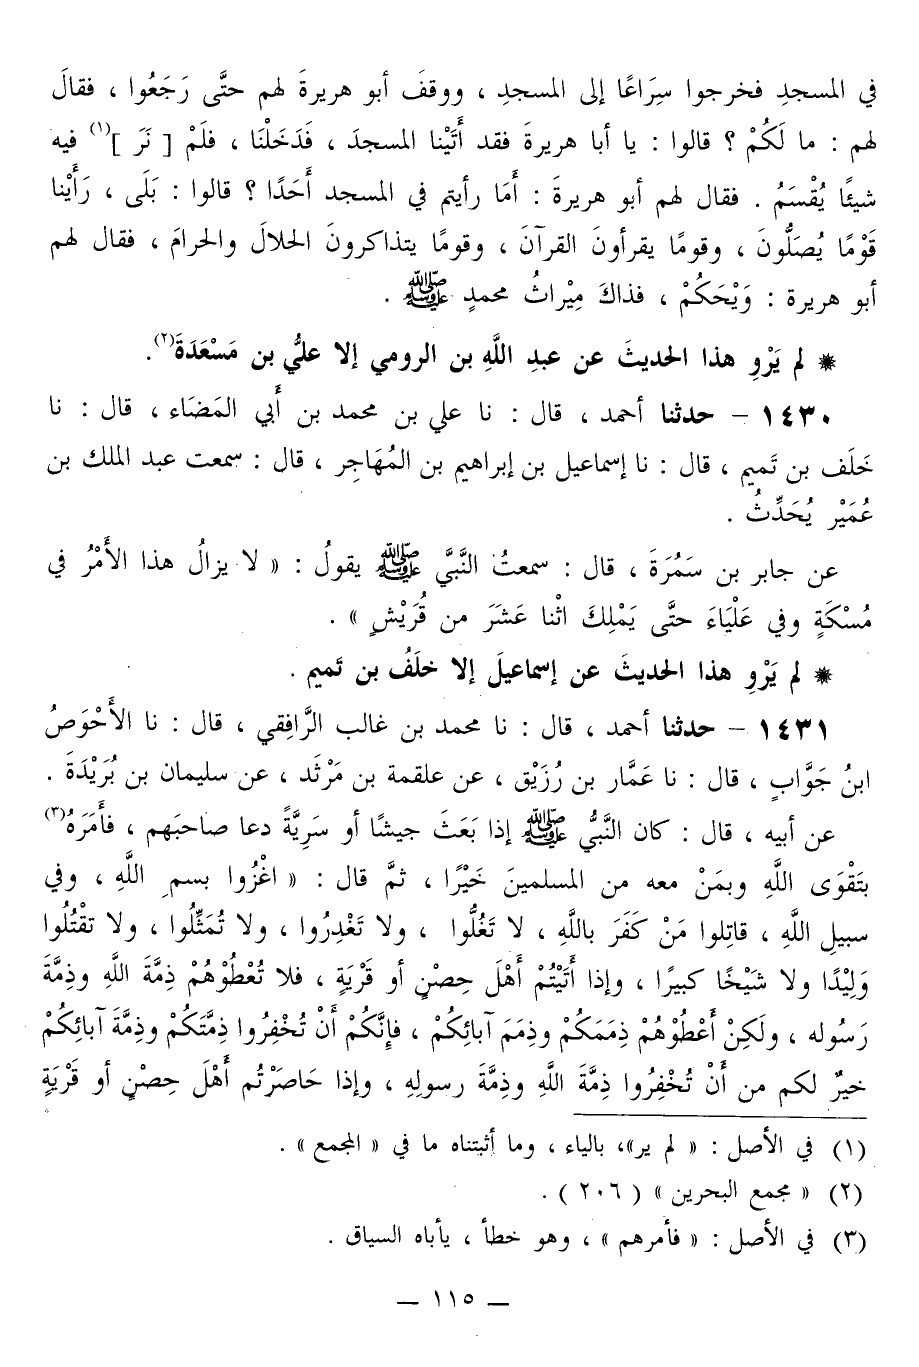 في المسجدِ فخرجوا سِرَاعًا إلى المسجدِ ، ووقفَ أبو هريرةَ لهم حتَّى رَجَعُوا ، فقالَ
لهم : ما لَكُمْ ؟ قالوا : يا أبا هريرةَ فقد أَتَيْنا المسجدَ ، فَدَخَلْنَا ، فلَمْ [ نَرَ ](١) فيه
شيئًا يُقْسَمُ . فقال لهم أبو هريرةَ : أَمَا رأيتم في المسجد أَحَدًا ؟ قالوا : بَلَى ، رَأَيْنا
قَوْمًا يُصَلُّونَ ، وقومًا يقرأونَ القرآنَ ، وقومًا يتذاكرونَ الحلالَ والحرامَ ، فقال لهم
أبو هريرة : وَيْحَكُمْ ، فذاكَ مِيْراثُ محمدٍ ﷺ .
* لم يَرْوِ هذا الحديثَ عن عبدِ اللَّهِ بن الرومي إلا عليُّ بن مَسْعَدَةَ(٢).
١٤٣٠ – حدثنا أحمد ، قال : نا علي بن محمد بن أَبي المَضَاء ، قال : نا
خَلَف بن تَميم ، قال : نا إسماعيل بن إبراهيم بن المُهَاجِر ، قال : سمعت عبد الملك بن
عُمَيْر يُحَدِّثُ .
عن جابر بن سَمُرَةَ ، قال : سمعتُ النَّبيَّ ﷺ يقولُ : « لا يزالُ هذا الأَمْرُ في
مُسْكَةٍ وفي عَلْيَاءَ حتَّى يَمْلِكَ اثْنا عَشَرَ من قُرَيْشٍ » .
* لم يَرْوِ هذا الحديثَ عن إسماعيلَ إلا خلَفُ بن تَميم .
١٤٣١ – حدثنا أحمد ، قال : نا محمد بن غالب الرَّافِقي ، قال : نا الأَحْوَصُ
ابنُ جَوَّابٍ ، قال : نا عَمَّار بن رُزَيْق ، عن علقمة بن مَرْثَد ، عن سليمان بن بُرَيْدَةَ .
عن أبيه ، قال : كان النَّبيُّ ﷺ إذا بَعَثَ جيشًا أو سَرِيَّةً دعا صاحبَهم ، فأَمَرَهُ(٣)
بتَقْوَى اللَّهِ وبمَنْ معه من المسلمينَ خَيْرًا ، ثمَّ قال : « اغْزُوا بسمِ اللَّهِ ، وفي
سبيلِ اللَّهِ ، قاتِلوا مَنْ كَفَرَ باللَّهِ ، لا تَغُلُّوا ، ولا تَغْدِرُوا ، ولا تُمَثِّلُوا ، ولا تقْتُلُوا
وَلِيْدًا ولا شَيْخًا كبيرًا ، وإذا أَتَيْتُمْ أَهْلَ حِصْنٍ أو قَرْيَةٍ ، فلا تُعْطُوْهُمْ ذِمَّةَ اللَّهِ وذِمَّةَ
رَسُوله ، ولَكِنْ أَعْطُوْهُمْ ذِمَمَكُمْ وذِمَمَ آبائِكُمْ ، فإِنَّكُمْ أَنْ تُخْفِرُوا ذِمَّتَكُمْ وذِمَّةَ آبائِكُمْ
خيرٌ لكم من أَنْ تُخْفِرُوا ذِمَّةَ اللَّهِ وذِمَّةَ رسولِهِ ، وإذا حَاصَرْتُم أَهْلَ حِصْنٍ أو قَرْيَةٍ
(١) في الأصل : « لم ير»، بالياء ، وما أثبتناه ما في « المجمع » .
(٢) « مجمع البحرين » ( ٢٠٦ ) .
(٣) في الأصل : « فأمرهم » ، وهو خطأ ، يأباه السياق .
– ١١٥ –